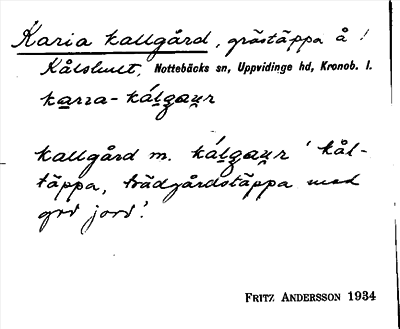 Karia kallgård, grästäppa å
Kålshult, Nottebäcks sn, Uppvidinge hd, Kronob. l.
karra-kálgaur
kallgård m. kálgaur 'kål-
täppa, trädgårdstäppa med
god jord'.
FRITZ ANDERSSON 1934